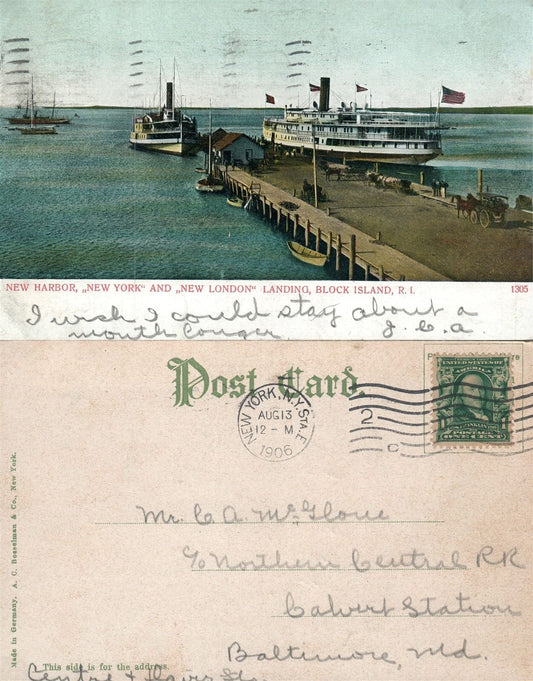 NEW HARBOR, „NEW YORK“ AND „NEW LONDON“ LANDING, BLOCK ISLAND, R. I.
1305
I wish I could stay about a
month longer. J. C. A.
Post Card.
NEW YORK, N.Y. STA. E
AUG 13
12 - M
1906
2
C
UNITED STATES OF
AMERICA
FRANKLIN
POSTAGE
ONE CENT
Mr. C. A. McGlone
c/o Northern Central RR
Calvert Station
Baltimore, Md.
Centre &
This side is for the address.
Made in Germany. A. C. Bosselman & Co., New York.